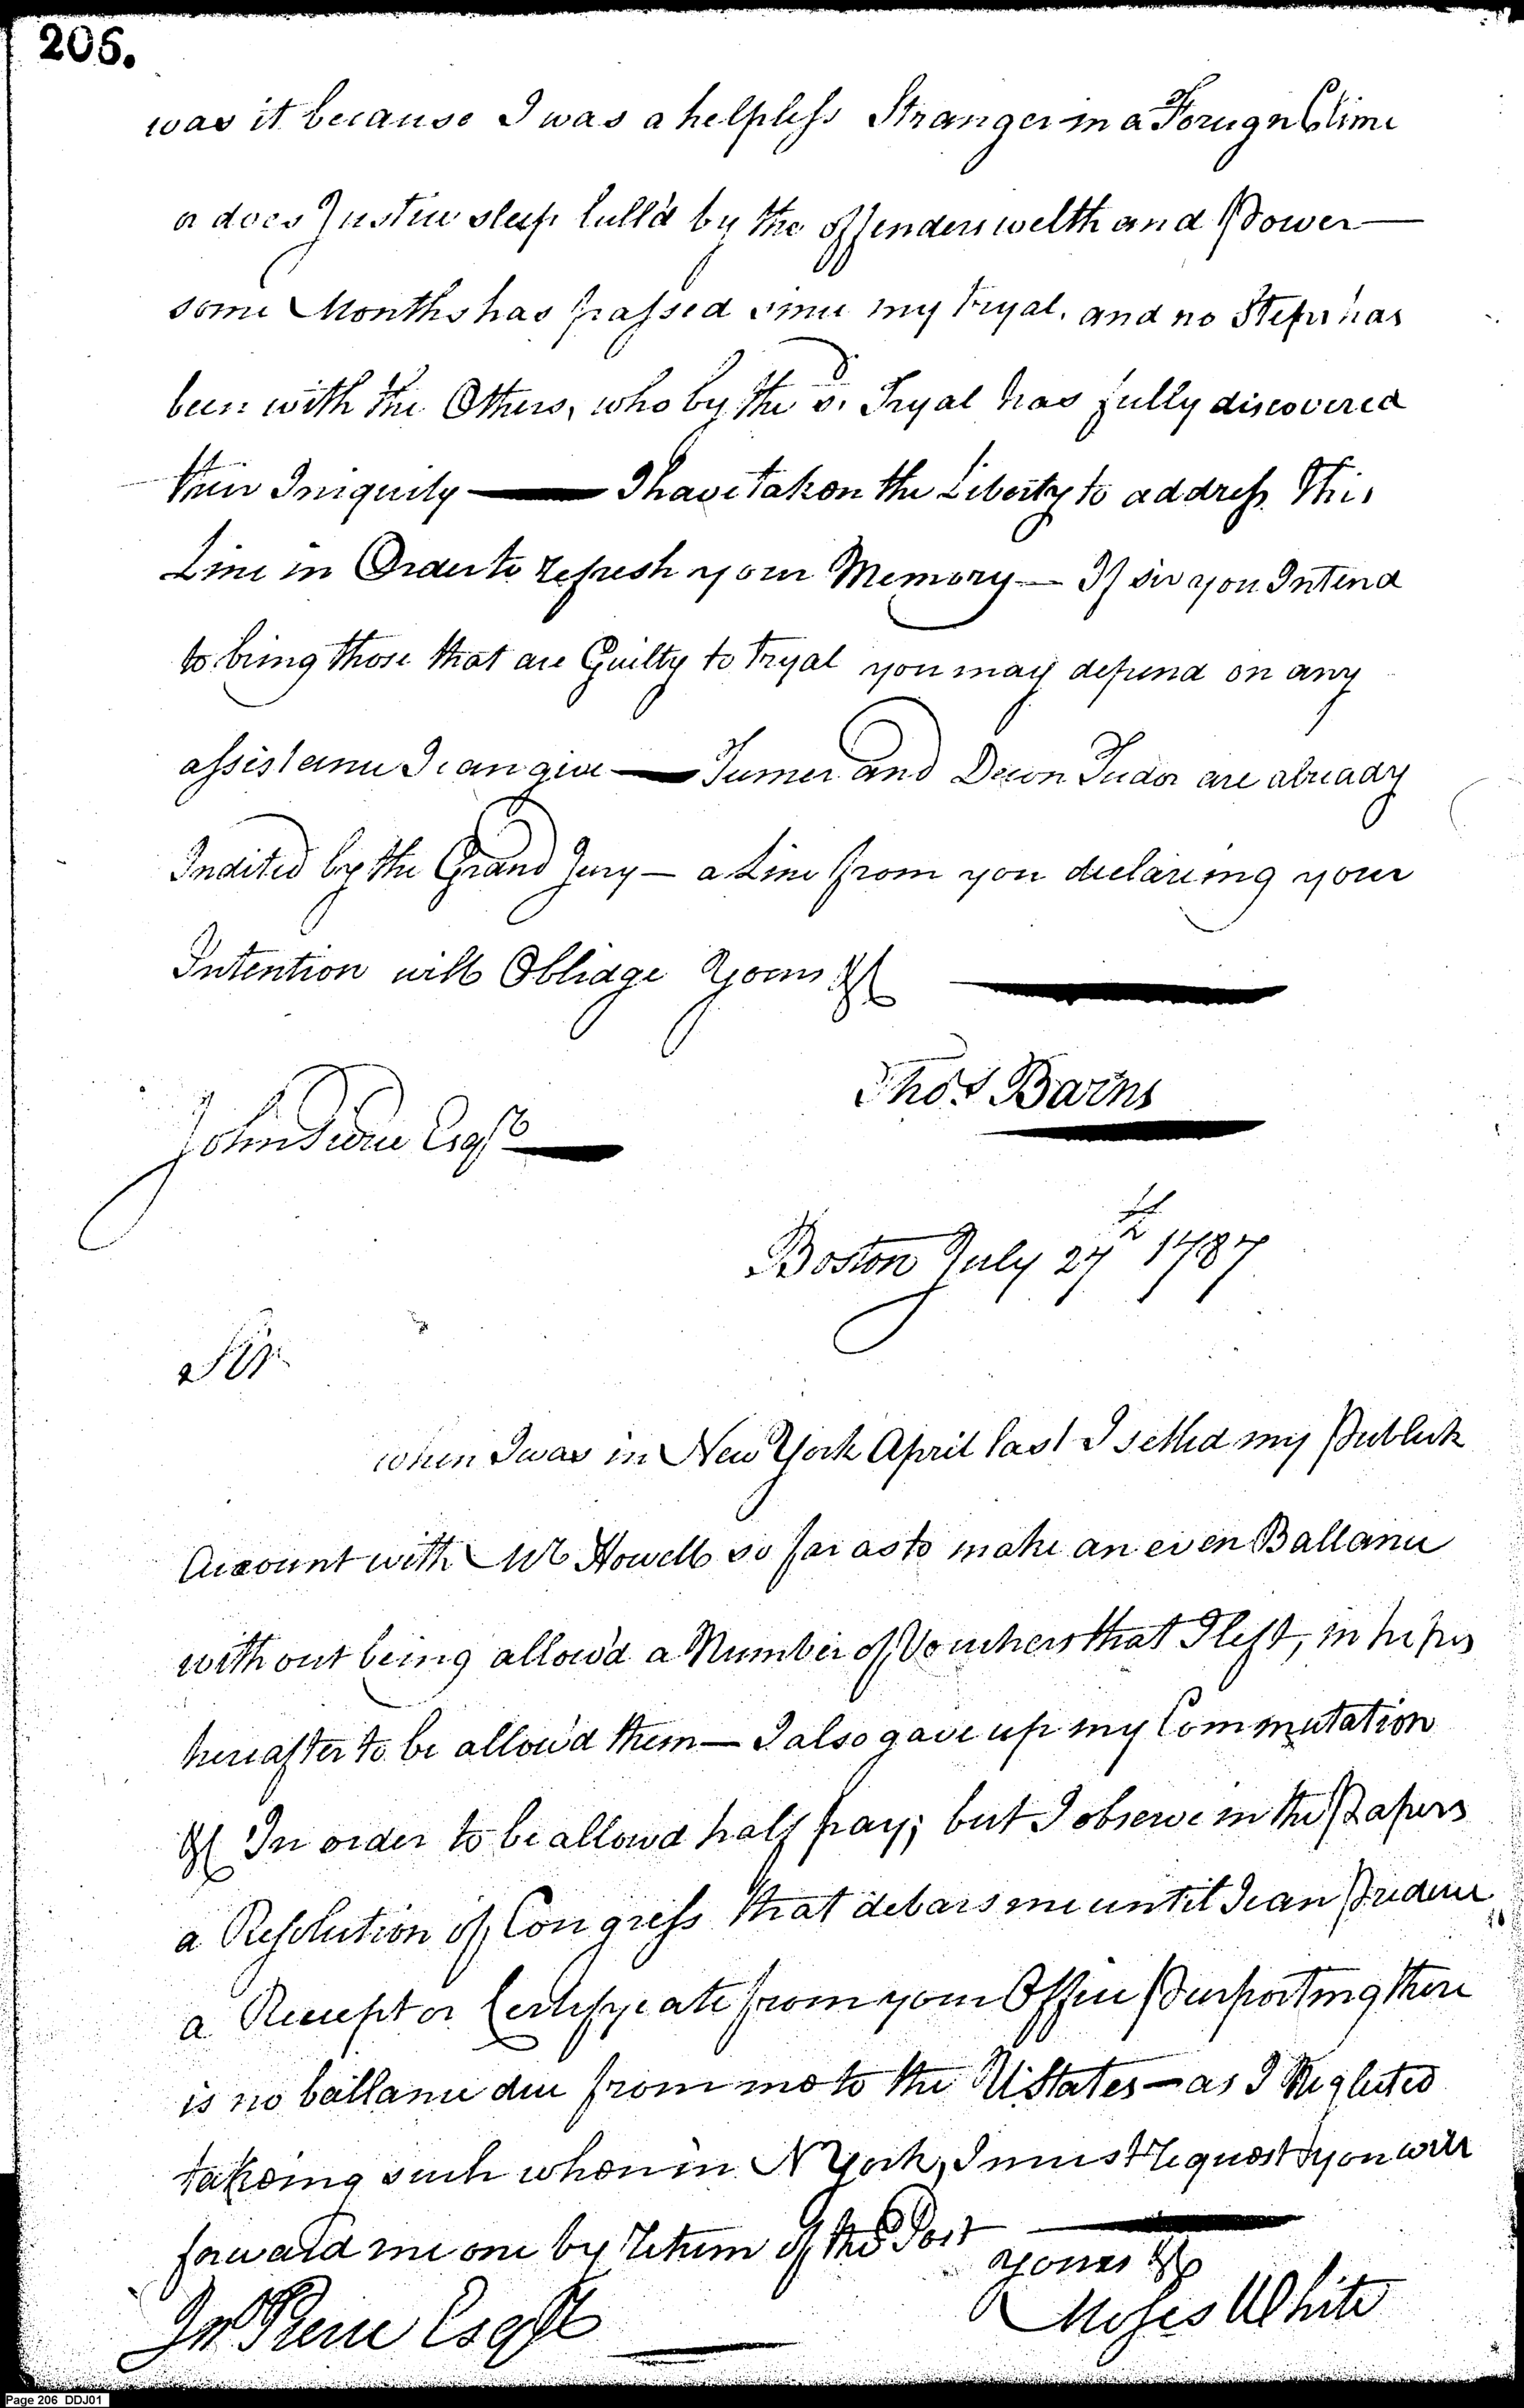 206.
was it because I was a helpless Stranger in a Foreign Clime
or does Justice sleep lull'd by the offenders welth and Power —
some Months has passed since my Tryal, and no Steps has
been with the Others, who by the sd. Tryal has fully discovered
their Iniquity — I have taken the Liberty to address This
Line in Order to refresh your Memory — If sir you Intend
to bring those that are Guilty to Tryal you may depend on any
assistance I can give — Turner and Tudor are already
Indited by the Grand Jury — a Line from you declareing your
Intention will Oblidge Yours &c
Thos. Barns
John Pierce Esqr
Boston July 27th 1787
Sir
when I was in New York April last I settled my Publick
Account with Mr Howell so far as to make an even Ballance
without being allow'd a Number of Vouchers that I left, in hopes
hereafter to be allow'd them — I also gave up my Commutation
&c In order to be allowd half pay; but I observe in the Papers
a Resolution of Congress that debars me until I can Produce
a Receipt or Certifycate from your Office Purporting there
is no ballance due from me to the U States — as I Neglected
takeing such when in N York, I must request you will
forward me one by return of the Post
Yours &c
Moses White
Jno Pierce Esqr
Page 206 DDJ01